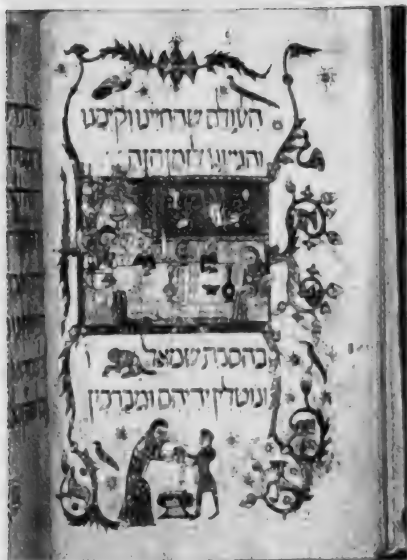 העולם שהחיינו וקיימנו
והגיענו לזמן הזה
בהסבת שמאל
ונוטלין ידיהם ומברכין